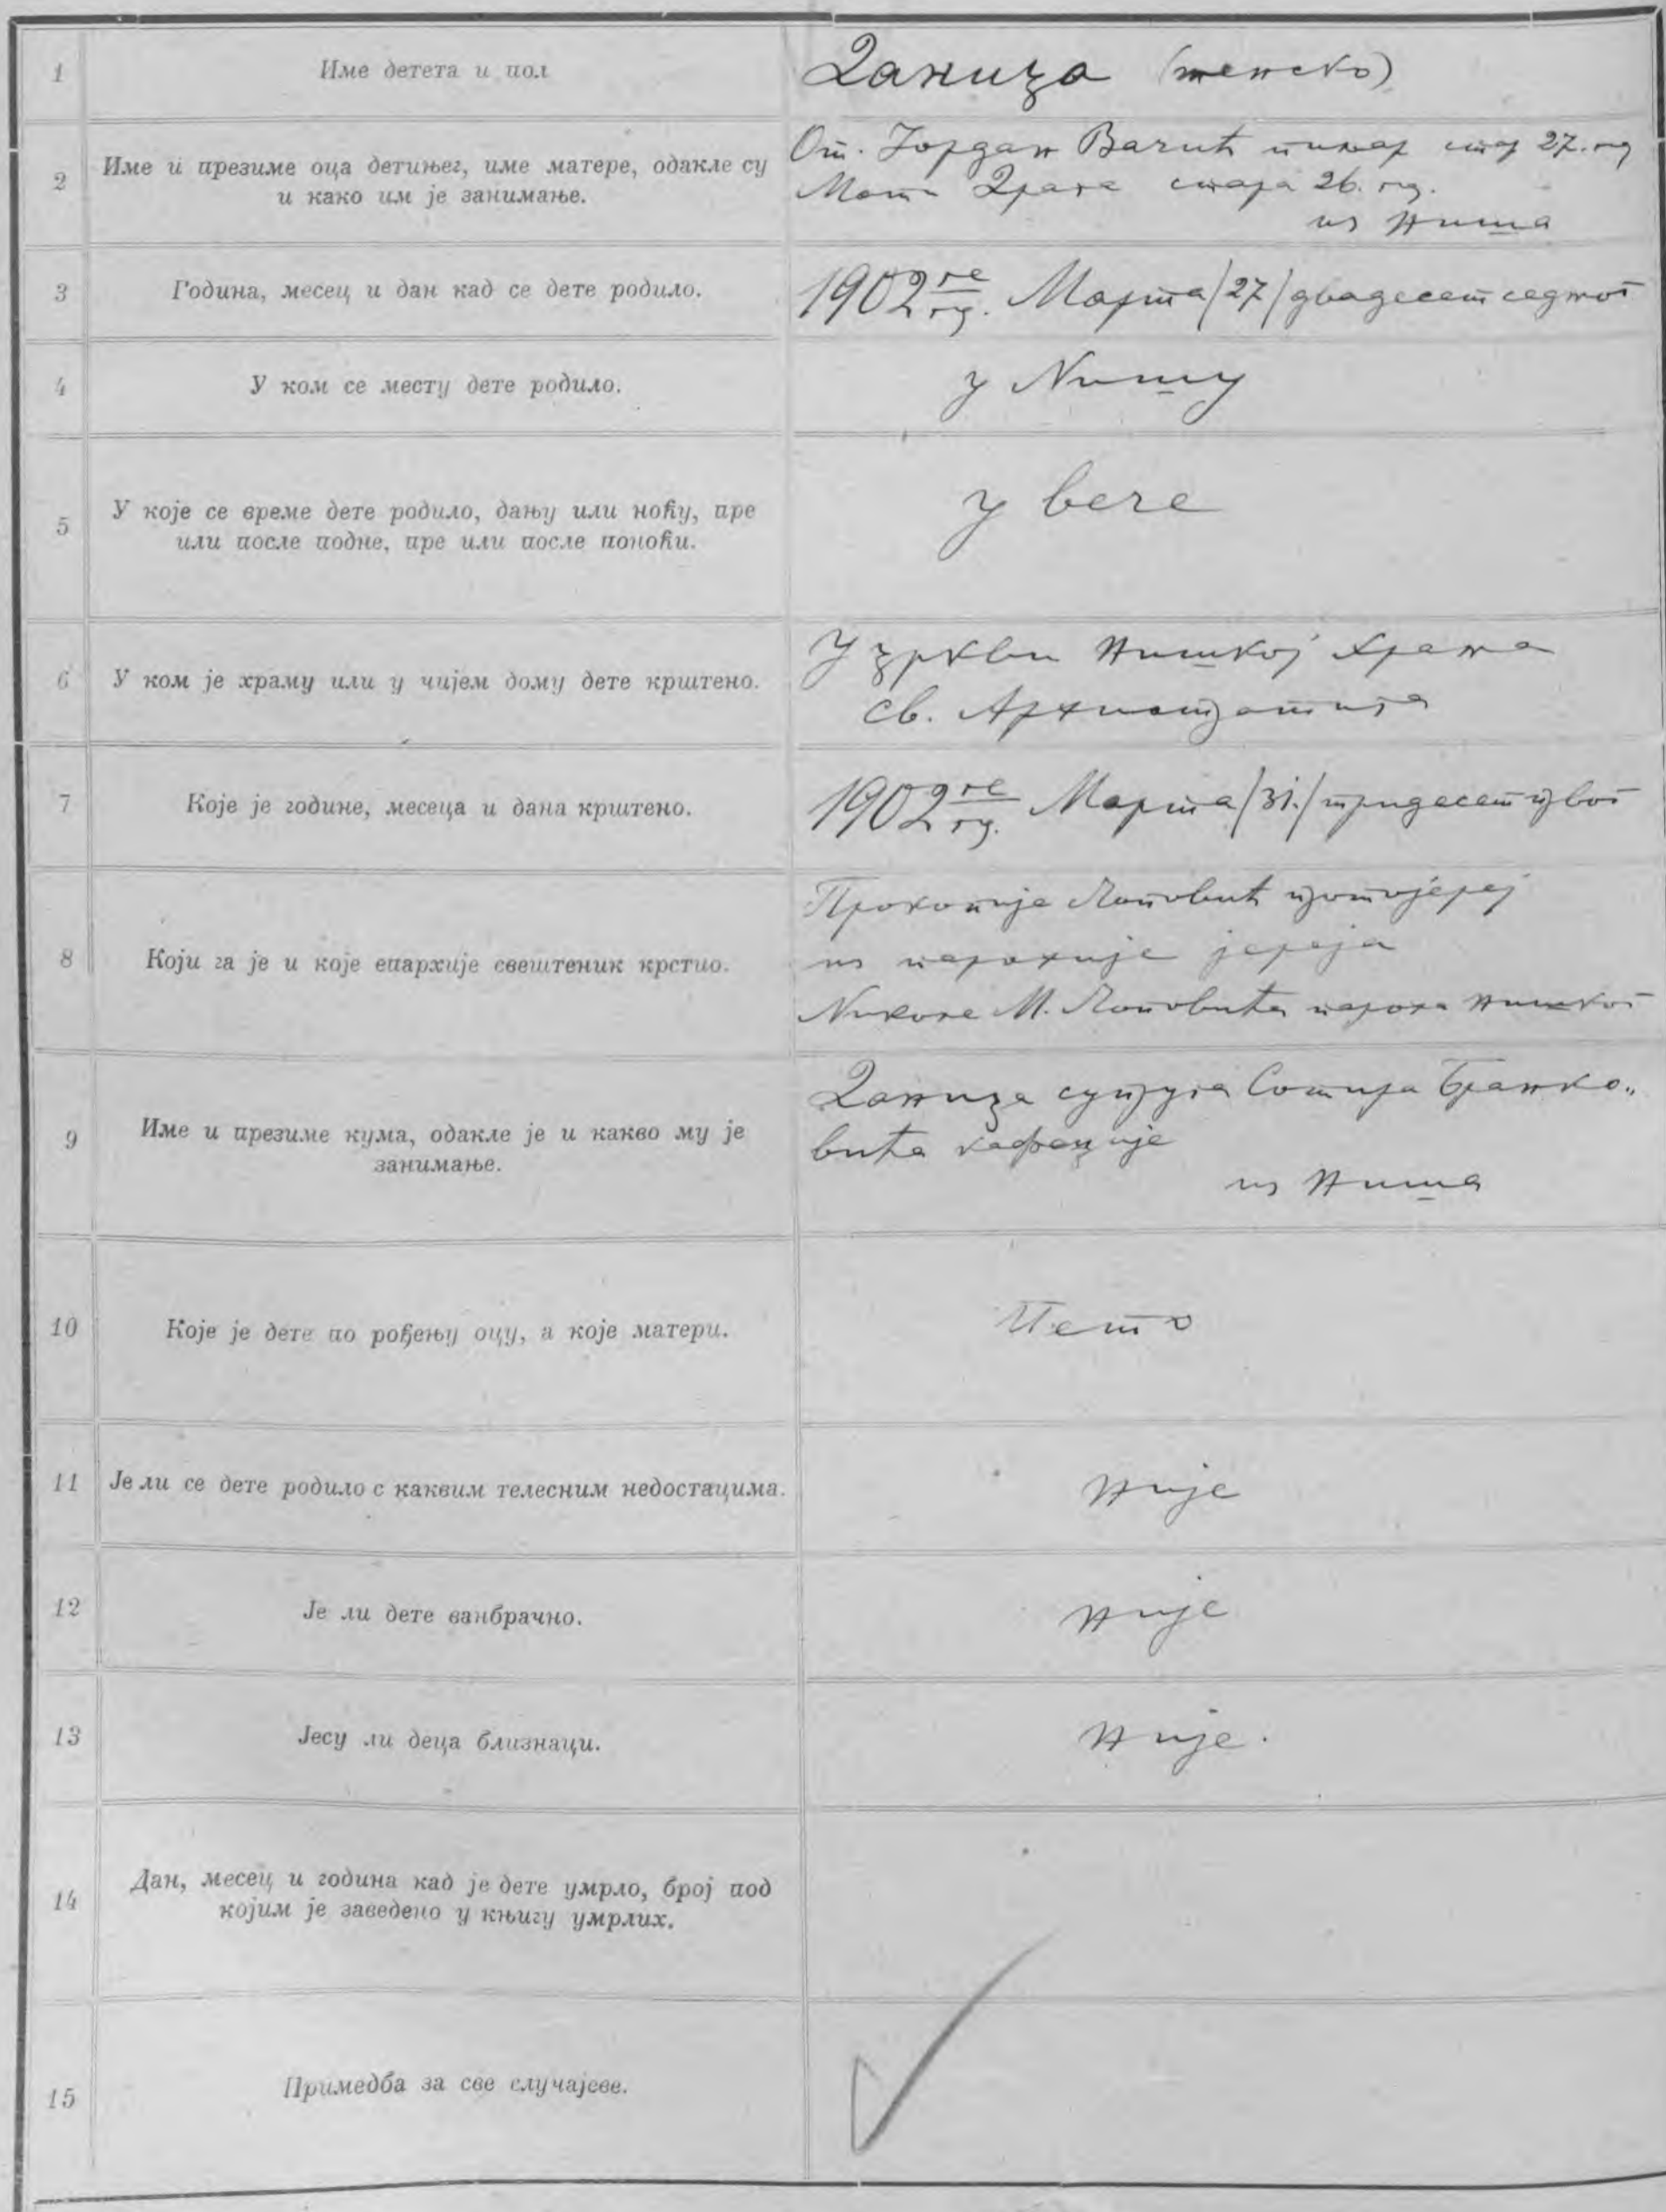 1
Име детета и пол
Даница (женско)
2
Име и презиме оца детињег, име матере, одакле су
и како им је занимање.
От. Јордан Вачић пинар стар 27. год
Мати Драга стара 26. год.
из Ниша
3
Година, месец и дан кад се дете родило.
1902 ге год. Марта /27/ двадесет седмог
4
У ком се месту дете родило.
у Нишу
5
У које се време дете родило, дању или ноћу, пре
или после подне, пре или после поноћи.
у вече
6
У ком је храму или у чијем дому дете крштено.
У цркви Нишкој храма
св. Архистратига
7
Које је године, месеца и дана крштено.
1902 ге год. Марта /31./ тридесет првог
8
Који га је и које епархије свештеник крстио.
Прокопије Поповић протојереј
из парохије јереја
Николе М. Поповића пароха нишког
9
Име и презиме кума, одакле је и какво му је
занимање.
Даница супруга Сотира Бранко„
вића кафеџије
из Ниша
10
Које је дете по рођењу оцу, а које матери.
Пето
11
Је ли се дете родило с каквим телесним недостацима.
није
12
Је ли дете ванбрачно.
није
13
Јесу ли деца близнаци.
није.
14
Дан, месец и година кад је дете умрло, број под
којим је заведено у књигу умрлих.
15
Примедба за све случајеве.